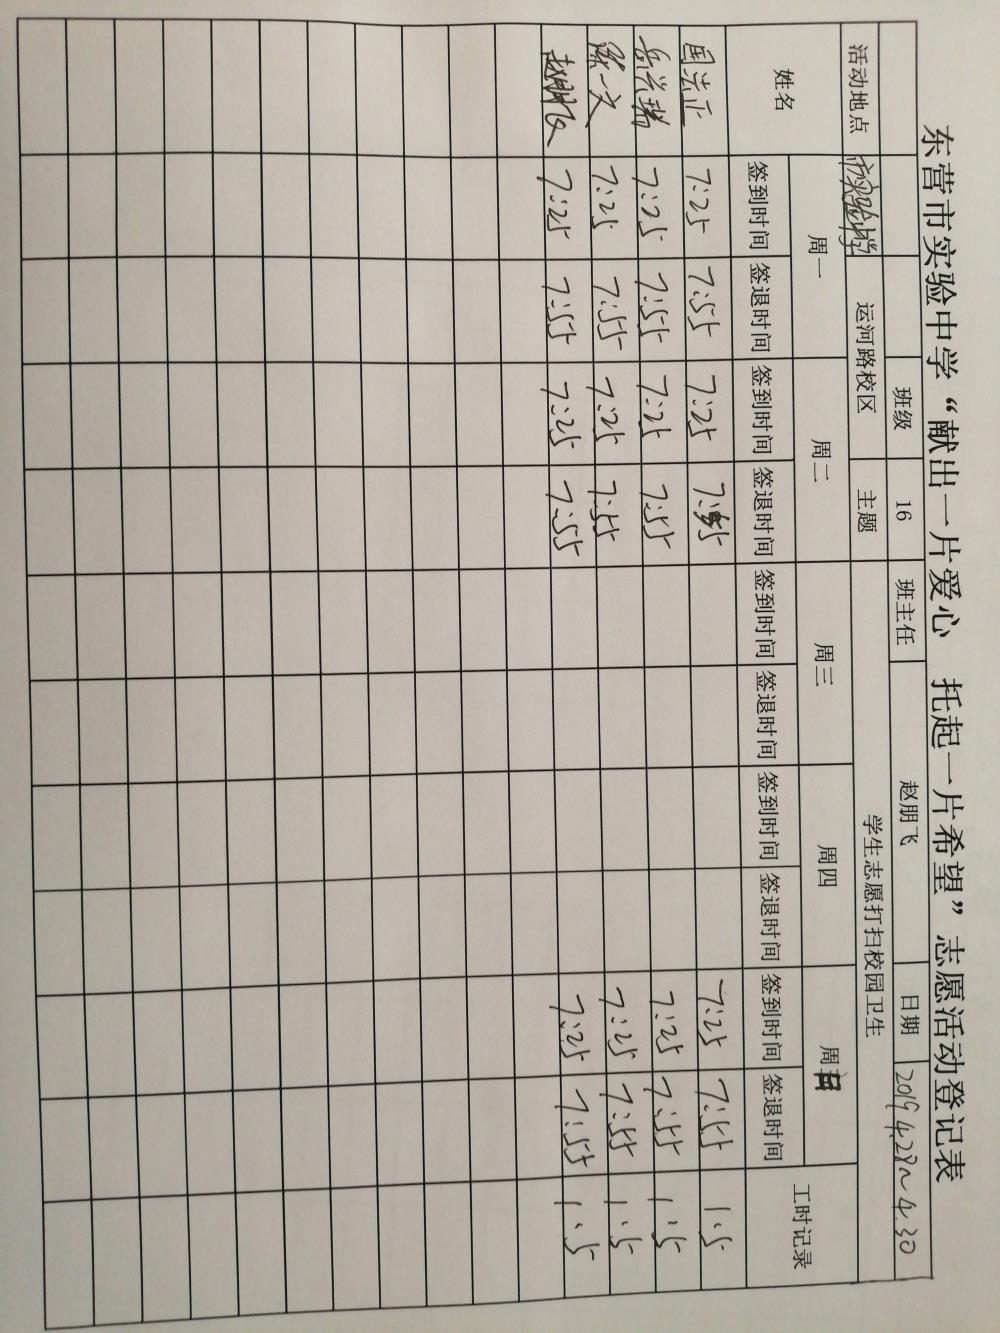 东营市实验中学“献出一片爱心 托起一片希望”志愿活动登记表
班级 16 班主任 赵朋飞 日期 2019 4.28~4.30
活动地点 市实验中学 运河路校区 主题 学生志愿打扫校园卫生
姓名 周一 周二 周三 周四 周日 工时记录
签到时间 签退时间 签到时间 签退时间 签到时间 签退时间 签到时间 签退时间 签到时间 签退时间
国法正 7:25 7:55 7:25 7:55 7:25 7:55 1.5
岳兴瑞 7:25 7:55 7:25 7:55 7:25 7:55 1.5
陈一文 7:25 7:55 7:25 7:55 7:25 7:55 1.5
赵朋飞 7:25 7:55 7:25 7:55 7:25 7:55 1.5